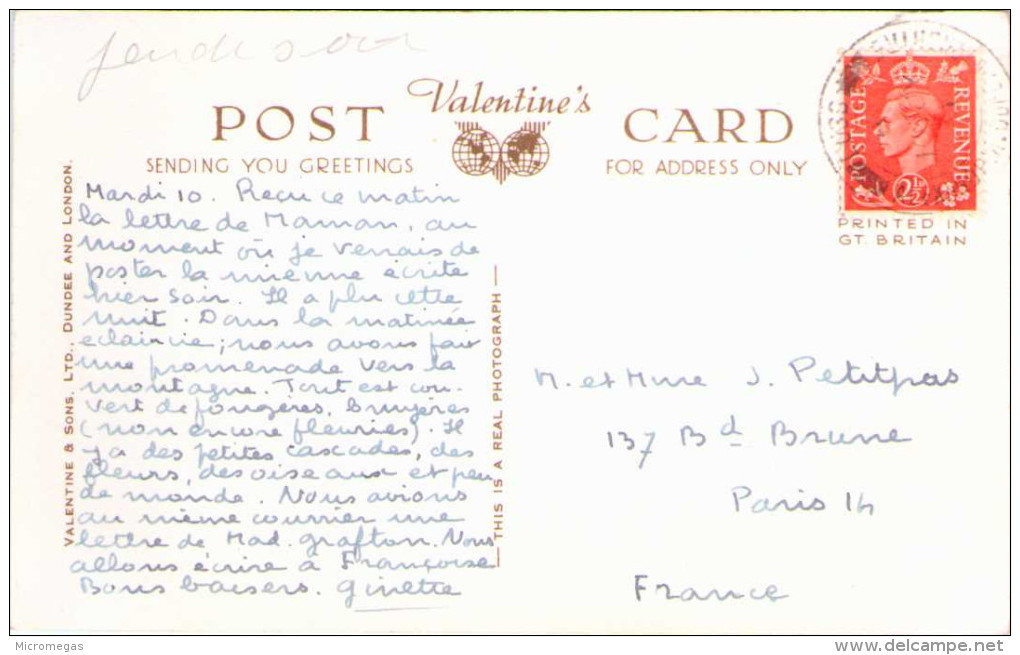 jeudi soir
POST Valentine's CARD
SENDING YOU GREETINGS
FOR ADDRESS ONLY
POSTAGE REVENUE
2½
PRINTED IN
GT. BRITAIN
VALENTINE & SONS, LTD., DUNDEE AND LONDON.
Mardi 10. Reçu ce matin
la lettre de Maman, au
moment où je venais de
poster la mienne écrite
hier soir. Il a plu cette
nuit. Dans la matinée
eclaircie; nous avons fait
une promenade vers la
montagne. Tout est cou-
vert de fougères, bruyères
(non encore fleuries). Il
y a des petites cascades, des
fleurs, des oiseaux et peu
de monde. Nous avions
au même courrier une
lettre de Mad. Grafton. Nous
allons écrire à Françoise
Bons baisers. Ginette
THIS IS A REAL PHOTOGRAPH
M. et Mme J. Petitpas
137 Bd Brune
Paris 14
France
Micromegas
www.delcampe.net